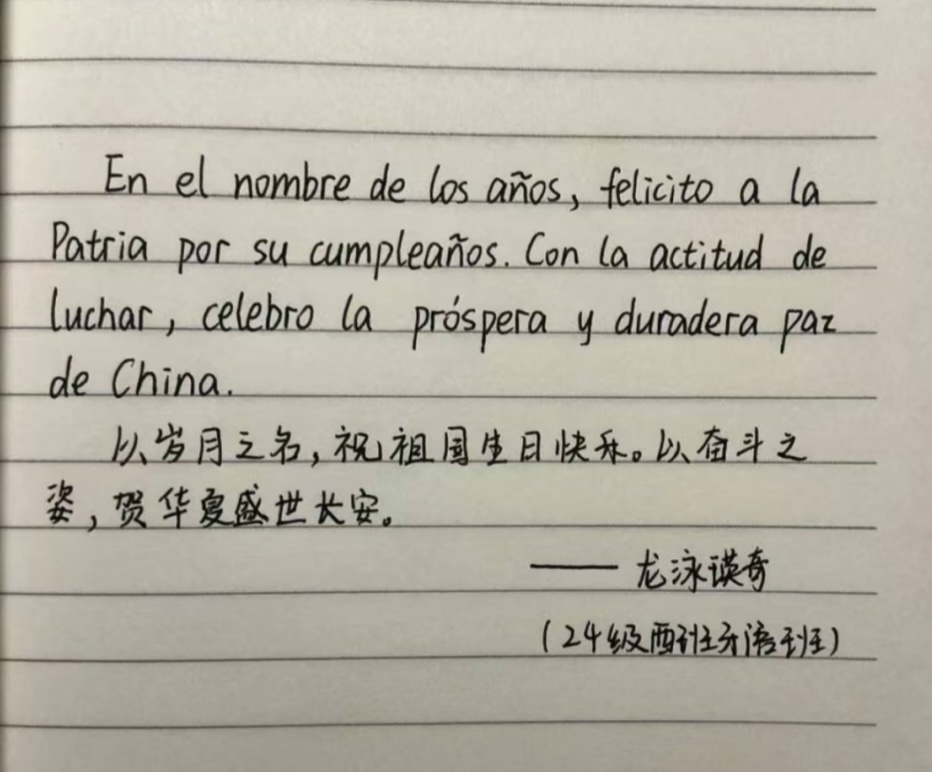 En el nombre de los años, felicito a la
Patria por su cumpleaños. Con la actitud de
luchar, celebro la próspera y duradera paz
de China.
以岁月之名，祝祖国生日快乐。以奋斗之
姿，贺华夏盛世长安。
—— 龙泳谟奇
（24级西班牙语班）